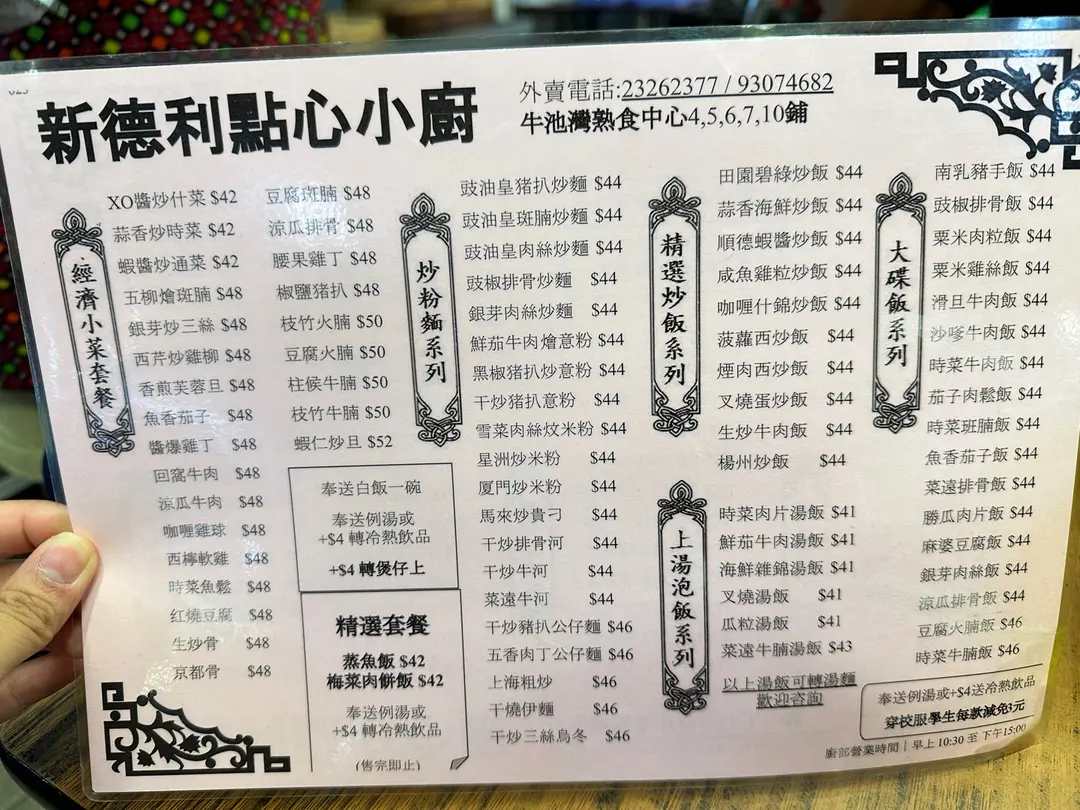 新德利點心小廚
外賣電話:23262377 / 93074682
牛池灣熟食中心4,5,6,7,10鋪
經濟小菜套餐
XO醬炒什菜 $42
蒜香炒時菜 $42
蝦醬炒通菜 $42
五柳燴斑腩 $48
銀芽炒三絲 $48
西芹炒雞柳 $48
香煎芙蓉旦 $48
魚香茄子 $48
醬爆雞丁 $48
回窩牛肉 $48
涼瓜牛肉 $48
咖喱雞球 $48
西檸軟雞 $48
時菜魚鬆 $48
红燒豆腐 $48
生炒骨 $48
京都骨 $48
豆腐斑腩 $48
涼瓜排骨 $48
腰果雞丁 $48
椒鹽猪扒 $48
枝竹火腩 $50
豆腐火腩 $50
柱侯牛腩 $50
枝竹牛腩 $50
蝦仁炒旦 $52
奉送白飯一碗
奉送例湯或
+$4 轉冷熱飲品
+$4 轉煲仔上
精選套餐
蒸魚飯 $42
梅菜肉餅飯 $42
奉送例湯或
+$4 轉冷熱飲品
(售完即止)
炒粉麵系列
豉油皇猪扒炒麵 $44
豉油皇斑腩炒麵 $44
豉油皇肉絲炒麵 $44
豉椒排骨炒麵 $44
銀芽肉絲炒麵 $44
鮮茄牛肉燴意粉 $44
黑椒猪扒炒意粉 $44
干炒猪扒意粉 $44
雪菜肉絲炆米粉 $44
星洲炒米粉 $44
厦門炒米粉 $44
馬來炒貴刁 $44
干炒排骨河 $44
干炒牛河 $44
菜遠牛河 $44
干炒豬扒公仔麵 $46
五香肉丁公仔麵 $46
上海粗炒 $46
干燒伊麵 $46
干炒三絲烏冬 $46
精選炒飯系列
田園碧綠炒飯 $44
蒜香海鮮炒飯 $44
順德蝦醬炒飯 $44
咸魚雞粒炒飯 $44
咖喱什錦炒飯 $44
菠蘿西炒飯 $44
煙肉西炒飯 $44
叉燒蛋炒飯 $44
生炒牛肉飯 $44
楊州炒飯 $44
上湯泡飯系列
時菜肉片湯飯 $41
鮮茄牛肉湯飯 $41
海鮮雜錦湯飯 $41
叉燒湯飯 $41
瓜粒湯飯 $41
菜遠牛腩湯飯 $43
以上湯飯可轉湯麵
歡迎咨詢
大碟飯系列
南乳豬手飯 $44
豉椒排骨飯 $44
粟米肉粒飯 $44
粟米雞絲飯 $44
滑旦牛肉飯 $44
沙嗲牛肉飯 $44
時菜牛肉飯 $44
茄子肉鬆飯 $44
時菜班腩飯 $44
魚香茄子飯 $44
菜遠排骨飯 $44
勝瓜肉片飯 $44
麻婆豆腐飯 $44
銀芽肉絲飯 $44
涼瓜排骨飯 $44
豆腐火腩飯 $46
時菜牛腩飯 $46
奉送例湯或+$4送冷熱飲品
穿校服學生每款減免3元
廚部營業時間｜早上 10:30 至 下午15:00